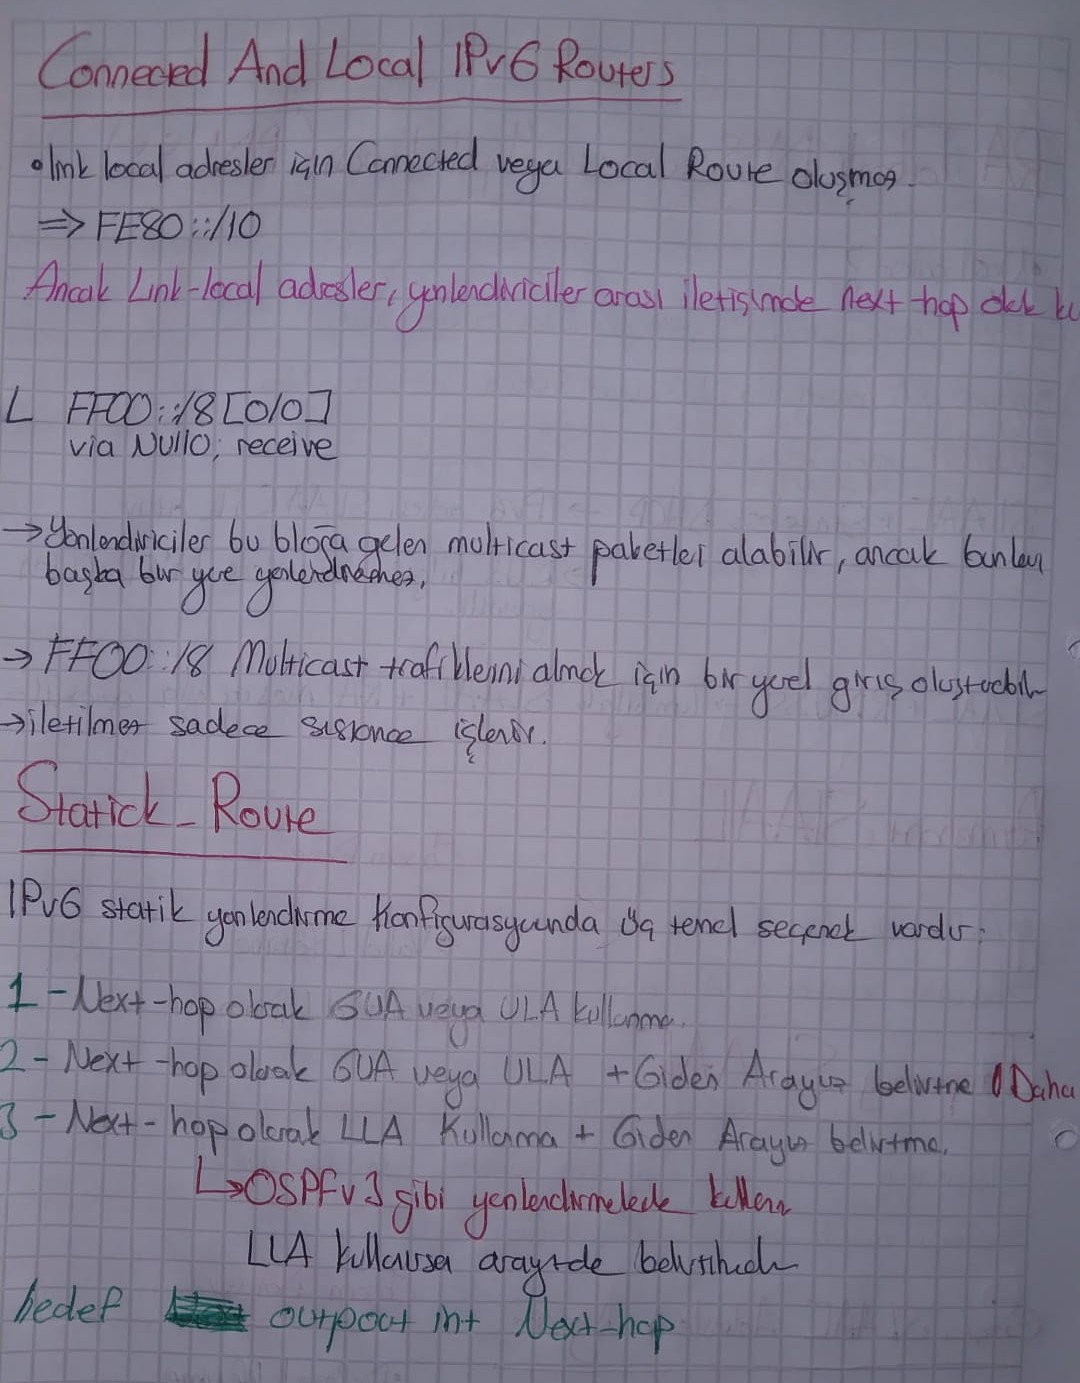 Connected And Local IPv6 Routers
• link local adresler için Connected veya Local Route oluşmaz.
⇒ FE80::/10
Ancak Link-local adresler, yönlendiriciler arası iletişimde next hop olarak
L FF00::/8 [0/0]
via Null0, receive
→ Yönlendiriciler bu bloğa gelen multicast paketleri alabilir, ancak bunları
başka bir yere yönlendiremez,
→ FF00::/8 Multicast trafiklerini almak için bir yerel giriş oluşturabilir
→ iletilmez sadece işlenir.
Statick_Route
IPv6 statik yönlendirme Konfigurasyonunda üç temel seçenek vardır:
1 - Next-hop olarak GUA veya ULA kullanma.
2 - Next-hop olarak GUA veya ULA + Giden Arayüz belirtme (Daha
3 - Next-hop olarak LLA Kullanma + Giden Arayüz belirtme.
↳ OSPFv3 gibi yönlendirmelerde kullanır
LLA kullanırsa arayüzde belirtilmeli
hedef outpout int Next-hop